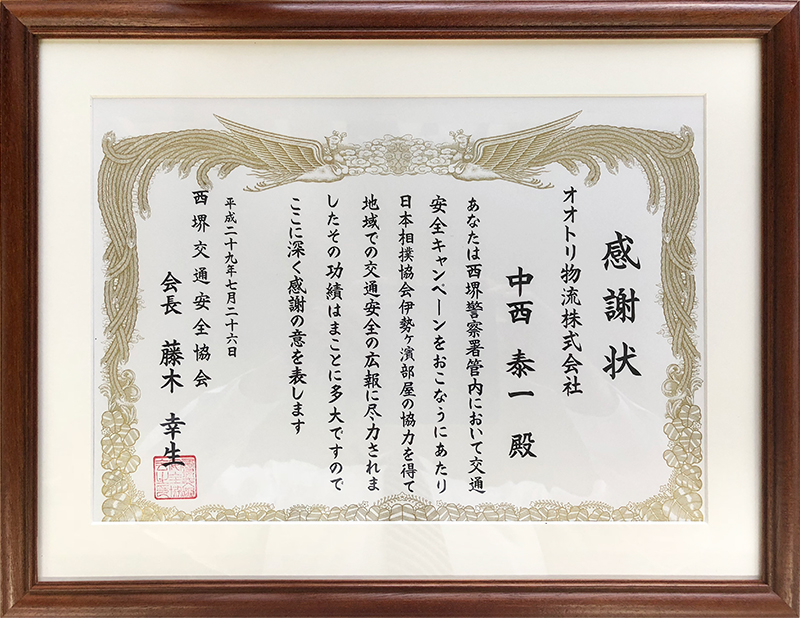 感謝状
オオトリ物流株式会社
中西 泰一 殿
あなたは西堺警察署管内において交通
安全キャンペーンをおこなうにあたり
日本相撲協会伊勢ヶ濱部屋の協力を得て
地域での交通安全の広報に尽力されま
したその功績はまことに多大ですので
ここに深く感謝の意を表します
平成二十九年七月二十六日
西堺交通安全協会
会長 藤木 幸生